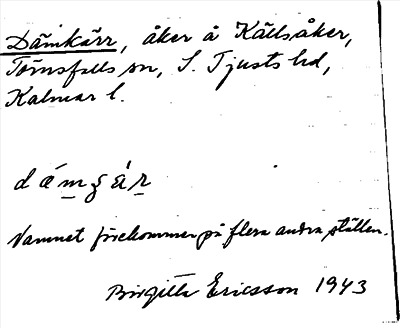 Dämkärr, åker å Källsåker,
Törnsfalls sn, S. Tjusts hd,
Kalmar l.
Namnet förekommer på flera andra ställen.
Birgitta Ericsson 1943